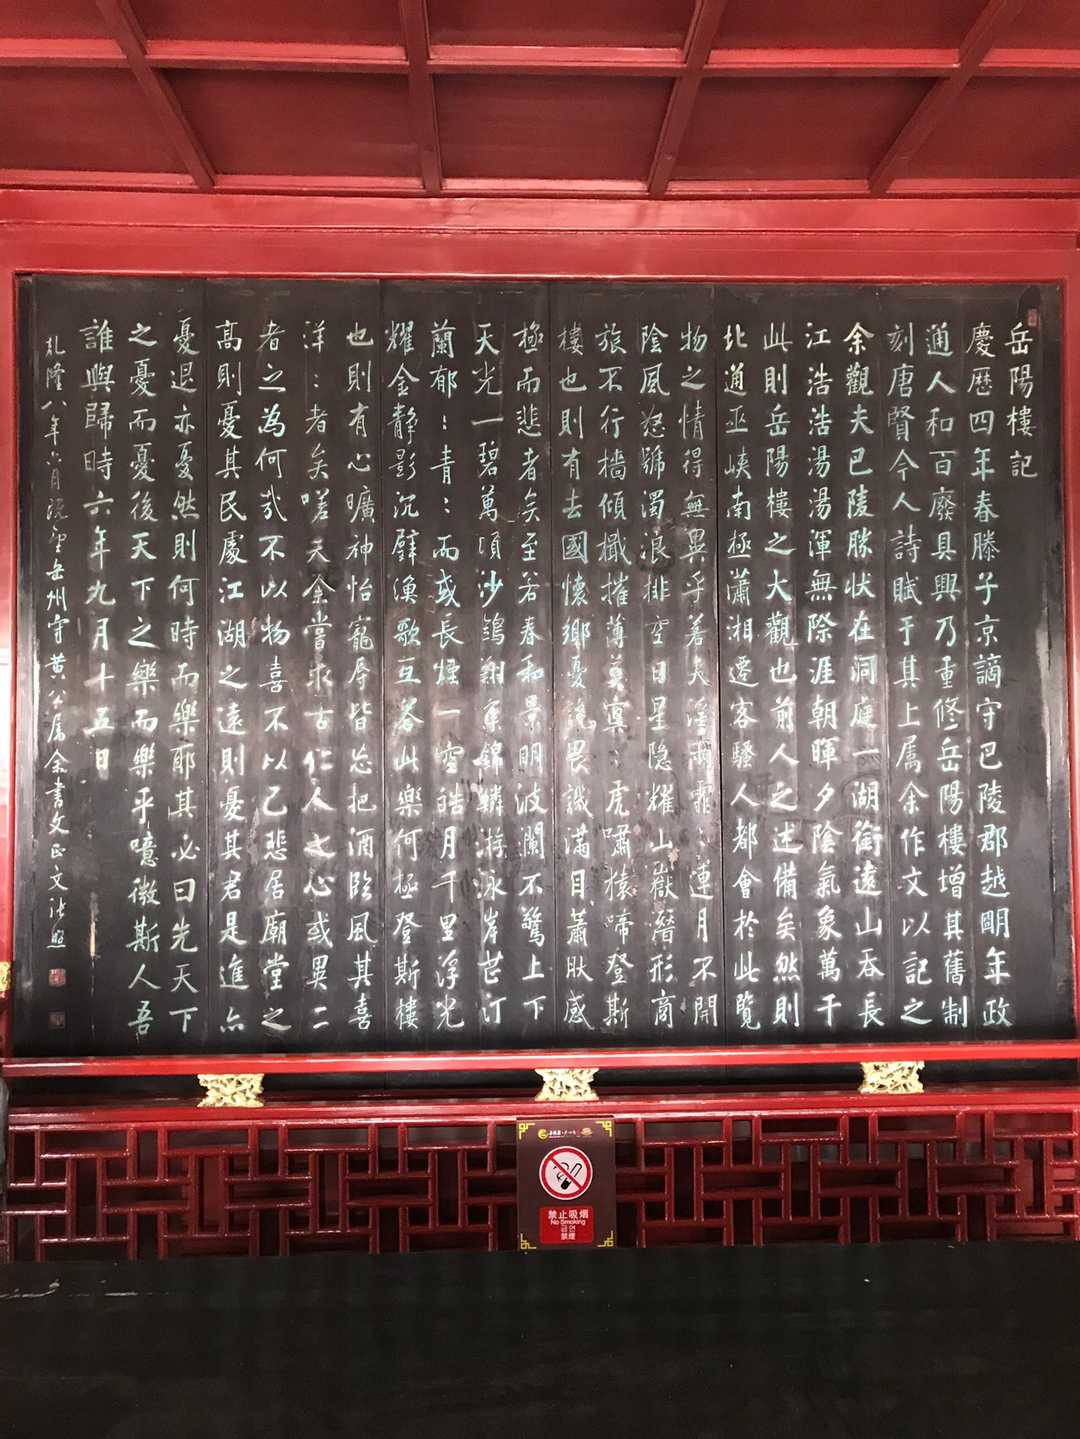 岳陽樓記
慶歷四年春滕子京謫守巴陵郡越明年政
通人和百廢具興乃重修岳陽樓增其舊制
刻唐賢今人詩賦于其上属余作文以記之
余觀夫巴陵勝状在洞庭一湖銜遠山吞長
江浩浩湯湯渾無際涯朝暉夕陰氣象萬千
此則岳陽樓之大觀也前人之述備矣然則
北通巫峽南極瀟湘遷客騷人都會於此覽
物之情得無異乎若夫淫雨霏:連月不開
陰風怒號濁浪排空日星隱耀山嶽潛形商
旅不行檣傾檝摧薄莫冥:虎嘯猿啼登斯
樓也則有去國懷鄉憂讒畏譏滿目蕭肰感
極而悲者矣至若春和景明波瀾不驚上下
天光一碧萬頃沙鷗翔集錦鱗游泳岸芷汀
蘭郁:青:而或長煙一空皓月千里浮光
耀金静影沉璧漁歌互荅此樂何極登斯樓
也則有心曠神怡寵辱皆忘把酒臨風其喜
洋:者矣嗟夫余嘗求古仁人之心或異二
者之為何哉不以物喜不以己悲居廟堂之
高則憂其民處江湖之遠則憂其君是進亦
憂退亦憂然則何時而樂耶其必曰先天下
之憂而憂後天下之樂而樂乎噫微斯人吾
誰與歸時六年九月十五日
乾隆八年六月既望岳州守黄公属余書文正文張照
禁止吸烟
No Smoking
금연
禁煙